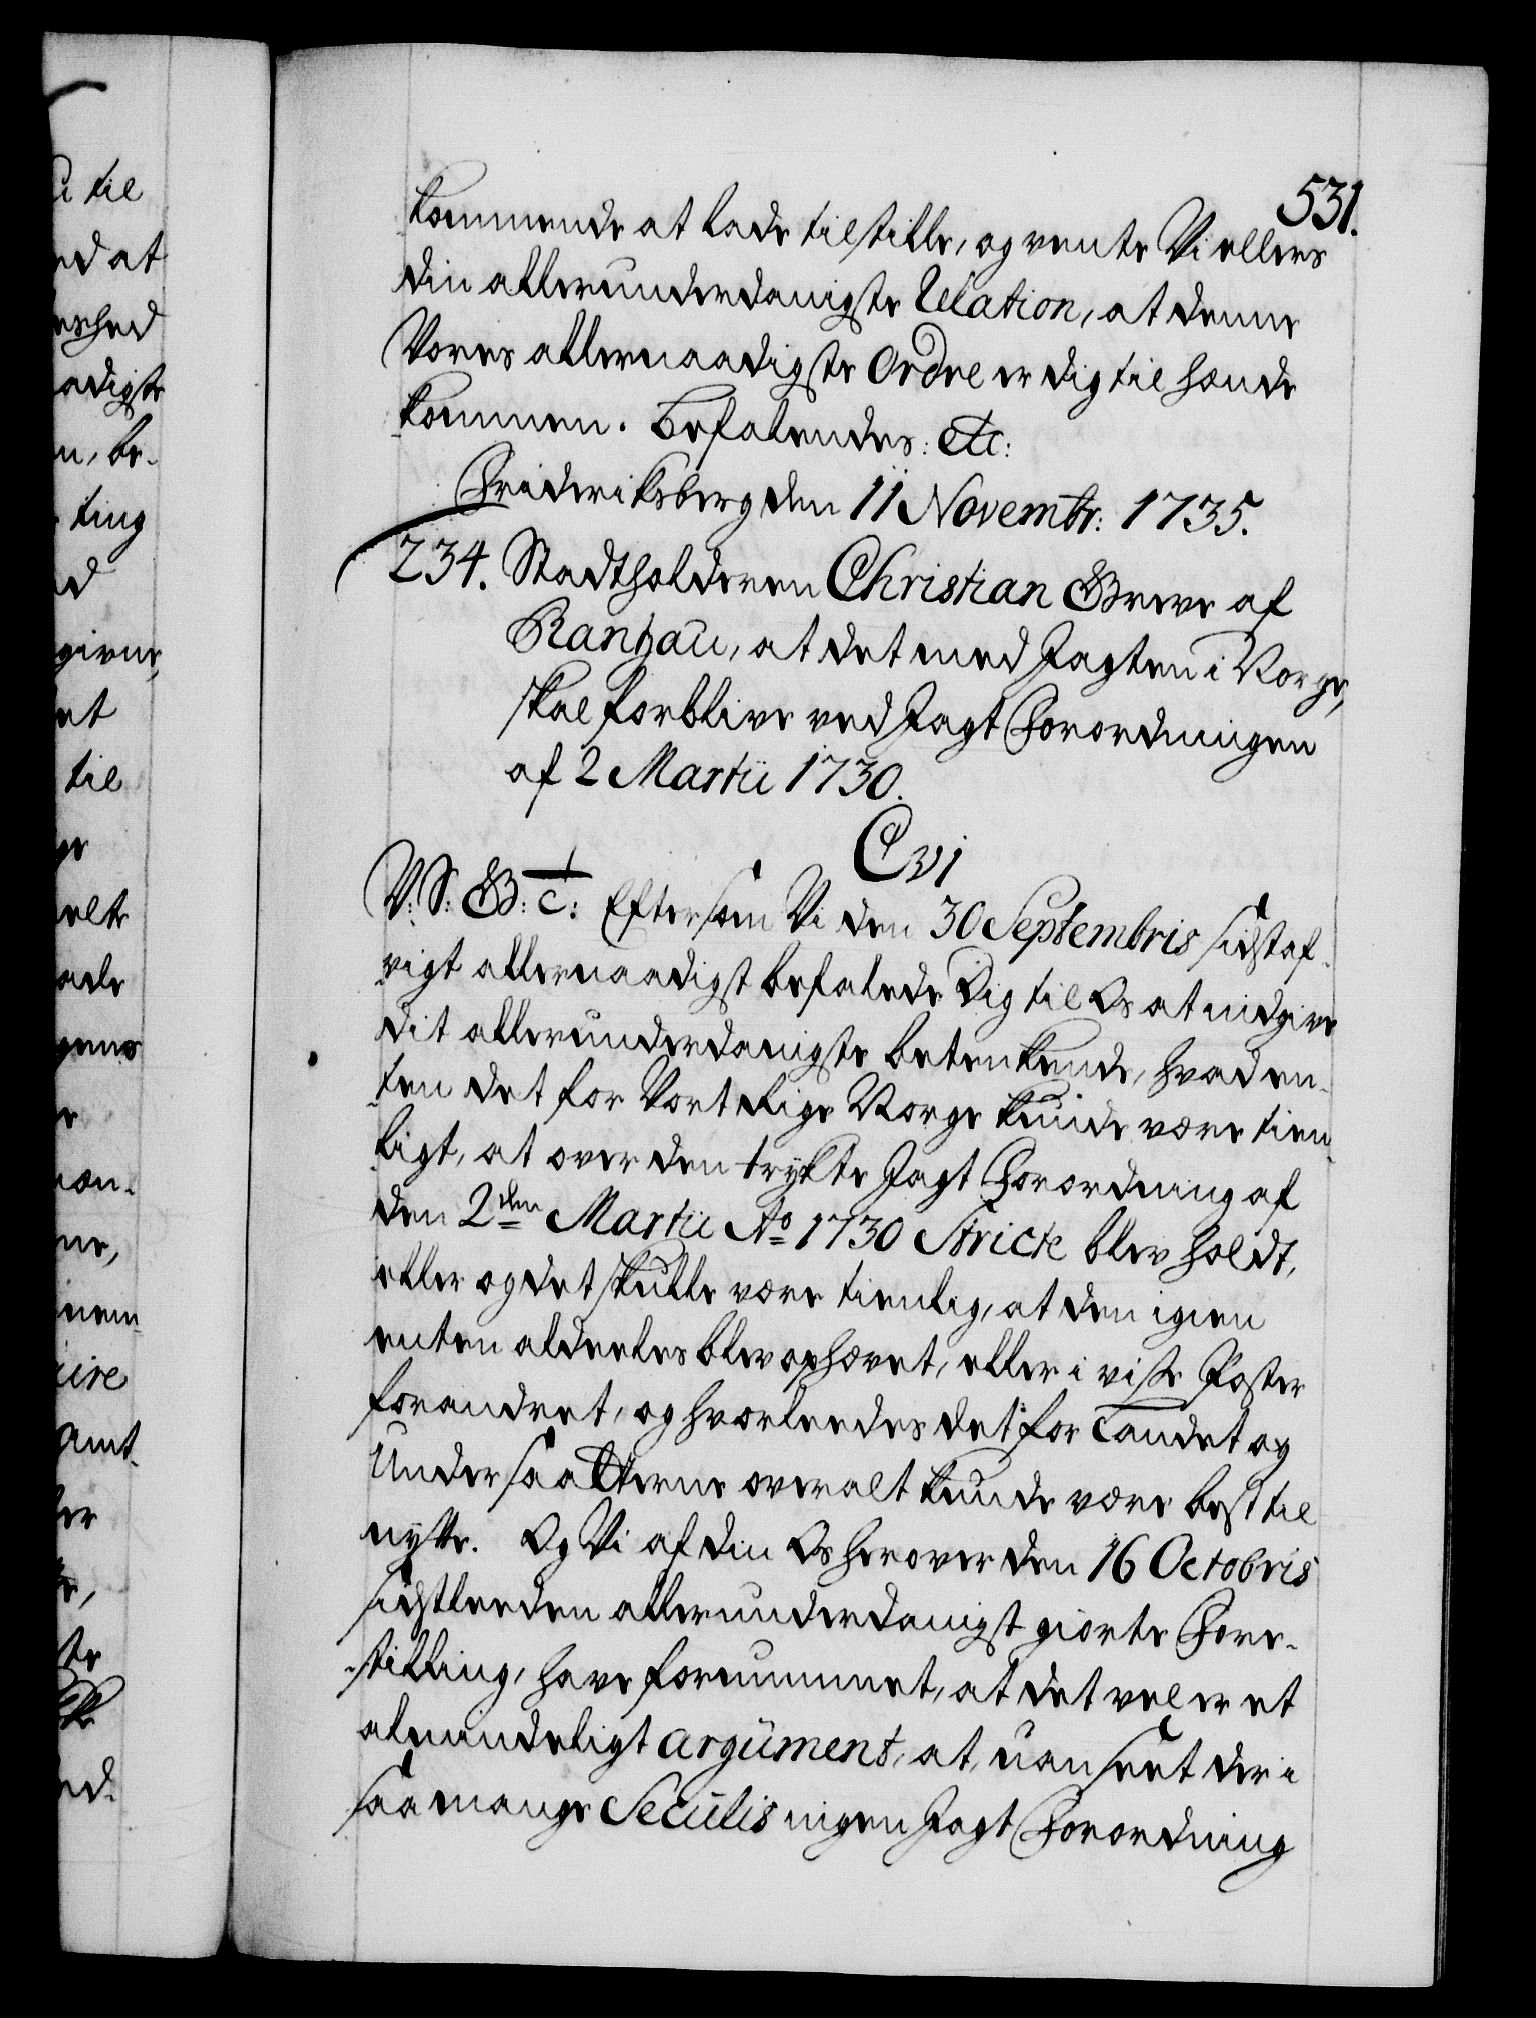 531.
kommende at lade tilstille, og vente Vi ellers
din allerunderdanigste Relation, at denne
Vores allernaadigste Ordre er dig til hænde
kommen. Befalendes: etc:
Friderichsberg den 11 Novembr: 1735.
234. Stadtholderen Christian Greve af
Rantzau, at det med Jagten i Norge,
skal forblive ved Jagt Forordningen
af 2 Martii 1730.
C VI
V: S: G: c: Eftersom Vi den 30 Septembris sidstaf-
vigt allernaadigst befalede Dig til Os at indgive
dit allerunderdanigste betenkende, hvad en-
ten det for Vort Rige Norge kunde være tien-
ligt, at over den trykte Jagt Forordning af
den 2den Martii Ao 1730 Stricte blev holdt,
eller og det skulle være tienlig, at den igien
enten aldeeles blev ophævet, eller i visse Poster
forandret, og hvorleedes det for Landet og
Undersaatterne overalt kunde være best til
nytte. Og Vi af din Os herover den 16 Octobris
sidstleeden allerunderdanigst giorte Fore-
stilling, have fornummet, at det vel er et
almindeligt argument, at, uanseet der i
saa mange Seculis ingen Jagt Forordning